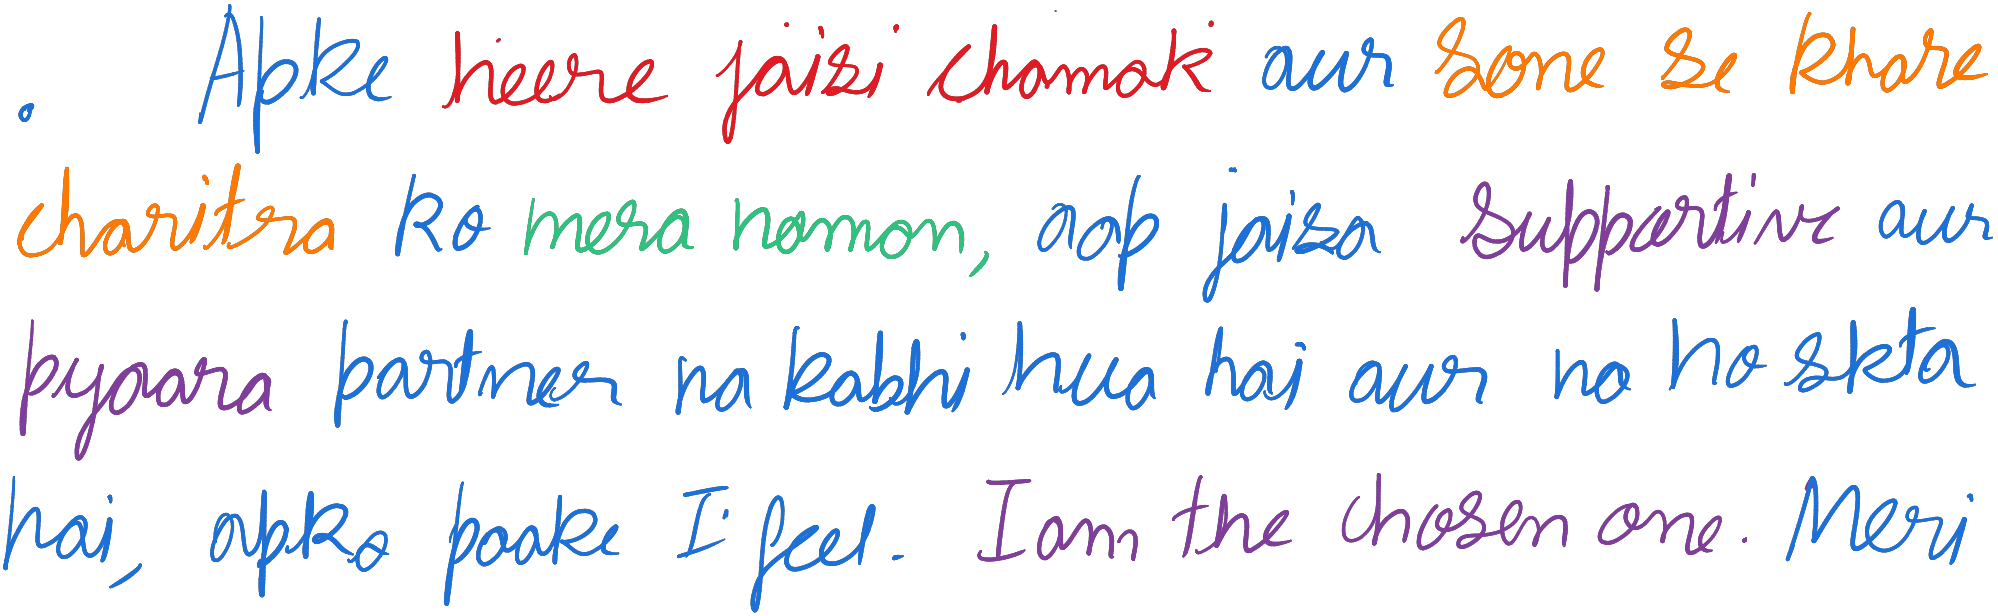 . Apke heere jaisi chamak aur sone se khare
charitra ko mera naman, aap jaisa supportive aur
pyaara partner na kabhi hua hai aur na ho skta
hai, apko paake I feel. I am the chosen one. Meri